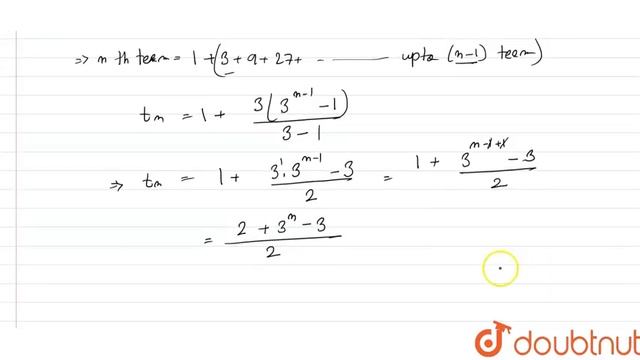 => n th term = 1 + (3 + 9 + 27 + - ——— upto (n-1) term)
tn = 1 + 3(3^(n-1) - 1) / 3 - 1
=> tn = 1 + 3^1 . 3^(n-1) - 3 / 2 = 1 + 3^(n-1+1) - 3 / 2
= 2 + 3^n - 3 / 2
doubtnut